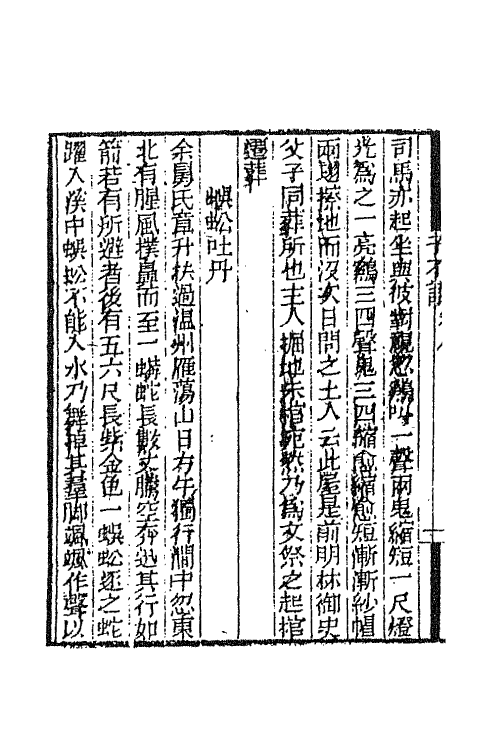 司馬亦起坐與彼對視忽鷄叫一聲兩鬼縮短一尺燈
光爲之一亮鷄三四聲鬼三四縮愈縮愈短漸漸紗帽
兩翅擦地而沒次日問之土人云此屋是前明林御史
父子同葬所也主人掘地朱棺宛然乃爲文祭之起棺
遷葬
蜈蚣吐丹
余舅氏章升扶過温州雁蕩山日方午獨行澗中忽東
北有腥風撲鼻而至一蟒蛇長數丈騰空奔迅其行如
箭若有所避者後有五六尺長紫金色一蜈蚣逐之蛇
躍入溪中蜈蚣不能入水乃舞掉其羣脚颯颯作聲以